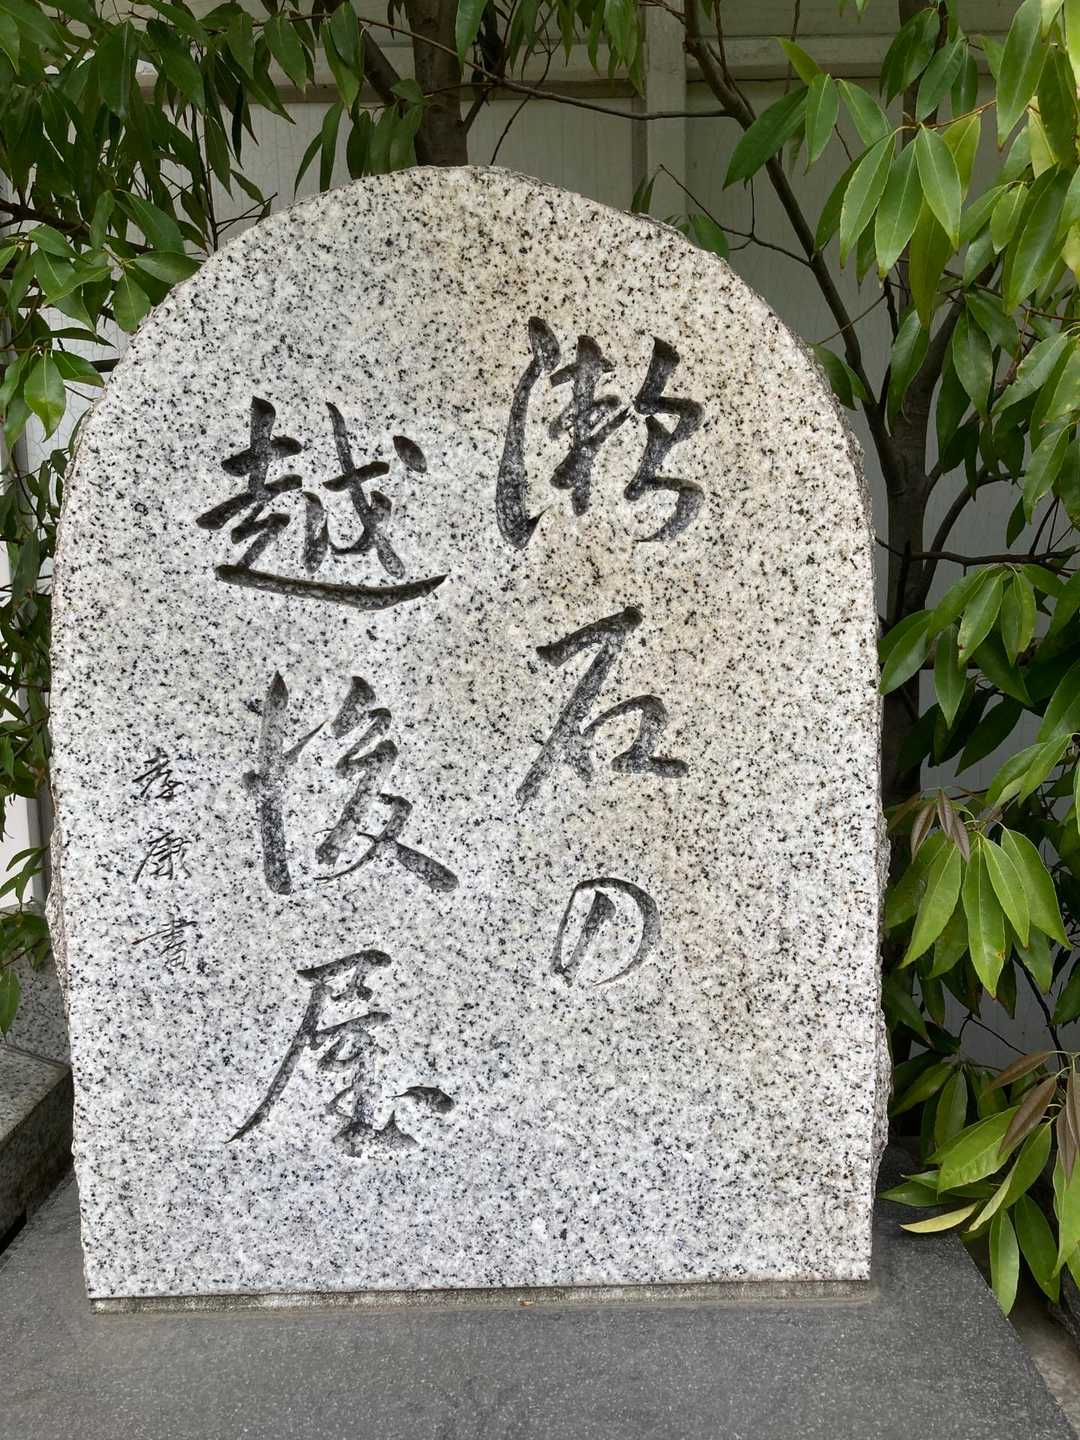 漱石の
越後屋
孝康書